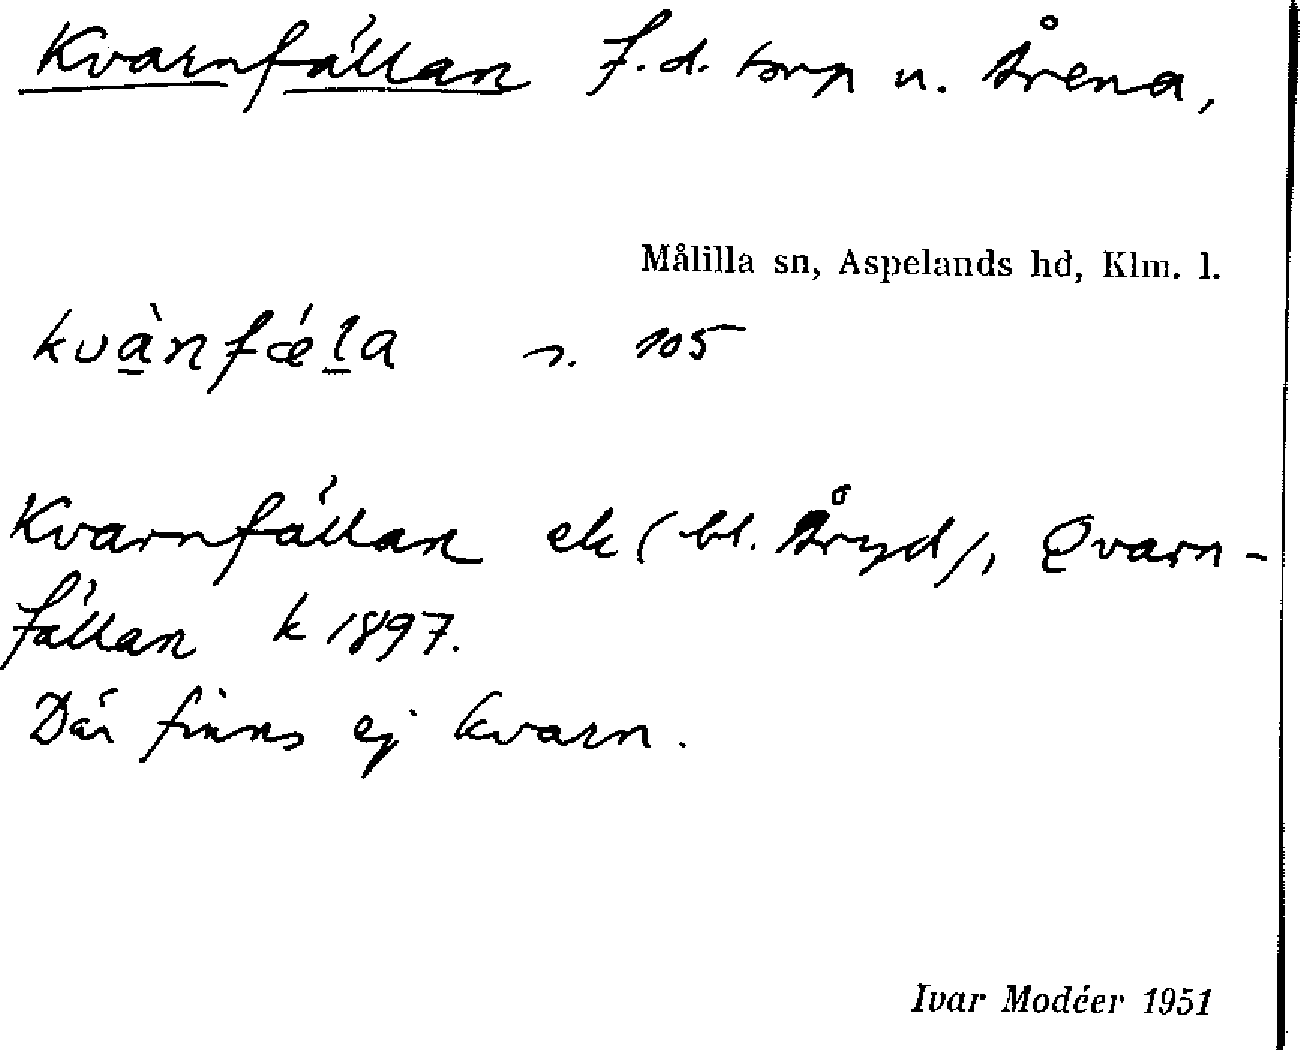 Kvarnfällan f.d. torp u. Årena,
Målilla sn, Aspelands hd, Klm. l.
kvànfǽla n. 105
Kvarnfällan ek (bl. Åryd), Qvarn-
fällan k 1897.
Där finns ej kvarn.
Ivar Modéer 1951